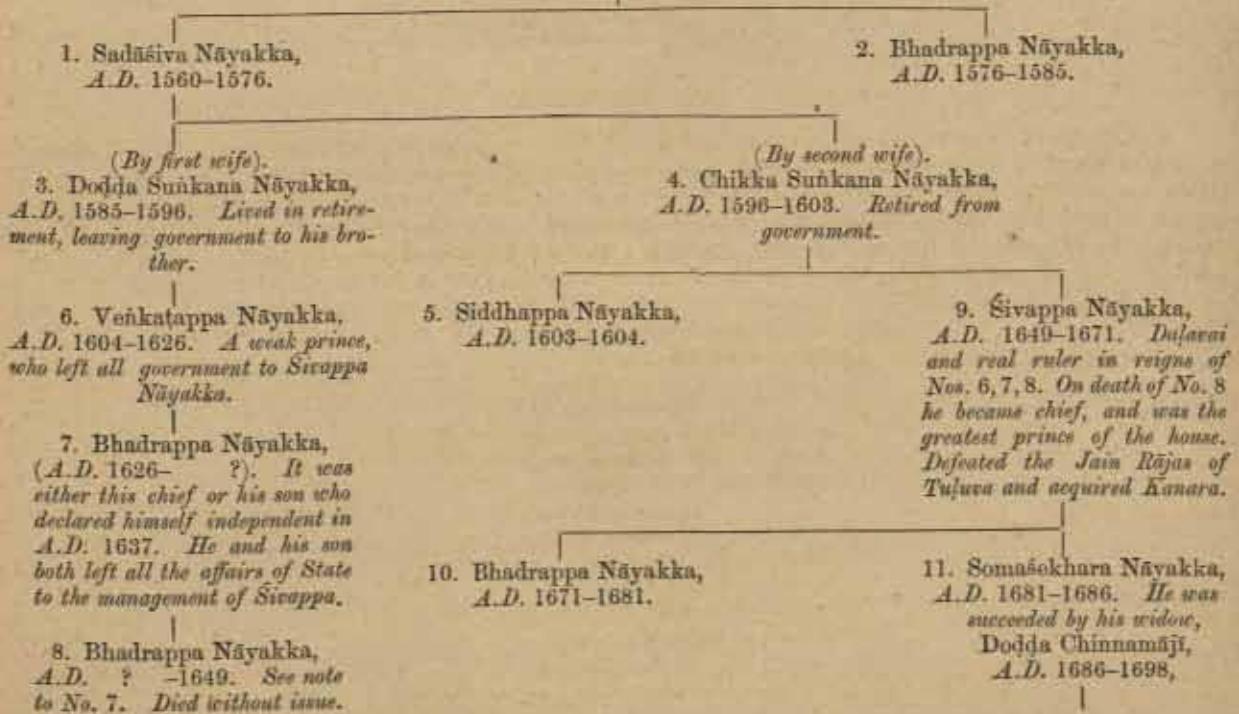 1. Sadāśiva Nāyakka,
A.D. 1560–1576.
2. Bhadrappa Nāyakka,
A.D. 1576–1585.
(By first wife).
3. Doḍḍa Suṅkana Nāyakka,
A.D. 1585–1596. Lived in retire-
ment, leaving government to his bro-
ther.
(By second wife).
4. Chikka Suṅkana Nāyakka,
A.D. 1596–1603. Retired from
government.
6. Veṅkatappa Nāyakka,
A.D. 1604–1626. A weak prince,
who left all government to Sivappa
Nāyakka.
5. Siddhappa Nāyakka,
A.D. 1603–1604.
9. Śivappa Nāyakka,
A.D. 1649–1671. Daḷavai
and real ruler in reigns of
Nos. 6, 7, 8. On death of No. 8
he became chief, and was the
greatest prince of the house.
Defeated the Jain Rājas of
Tuḷuva and acquired Kanara.
7. Bhadrappa Nāyakka,
(A.D. 1626– ?). It was
either this chief or his son who
declared himself independent in
A.D. 1637. He and his son
both left all the affairs of State
to the management of Sivappa.
10. Bhadrappa Nāyakka,
A.D. 1671–1681.
11. Somaśekhara Nāyakka,
A.D. 1681–1686. He was
succeeded by his widow,
Doḍḍa Chinnamājī,
A.D. 1686–1698,
8. Bhadrappa Nāyakka,
A.D. ? –1649. See note
to No. 7. Died without issue.